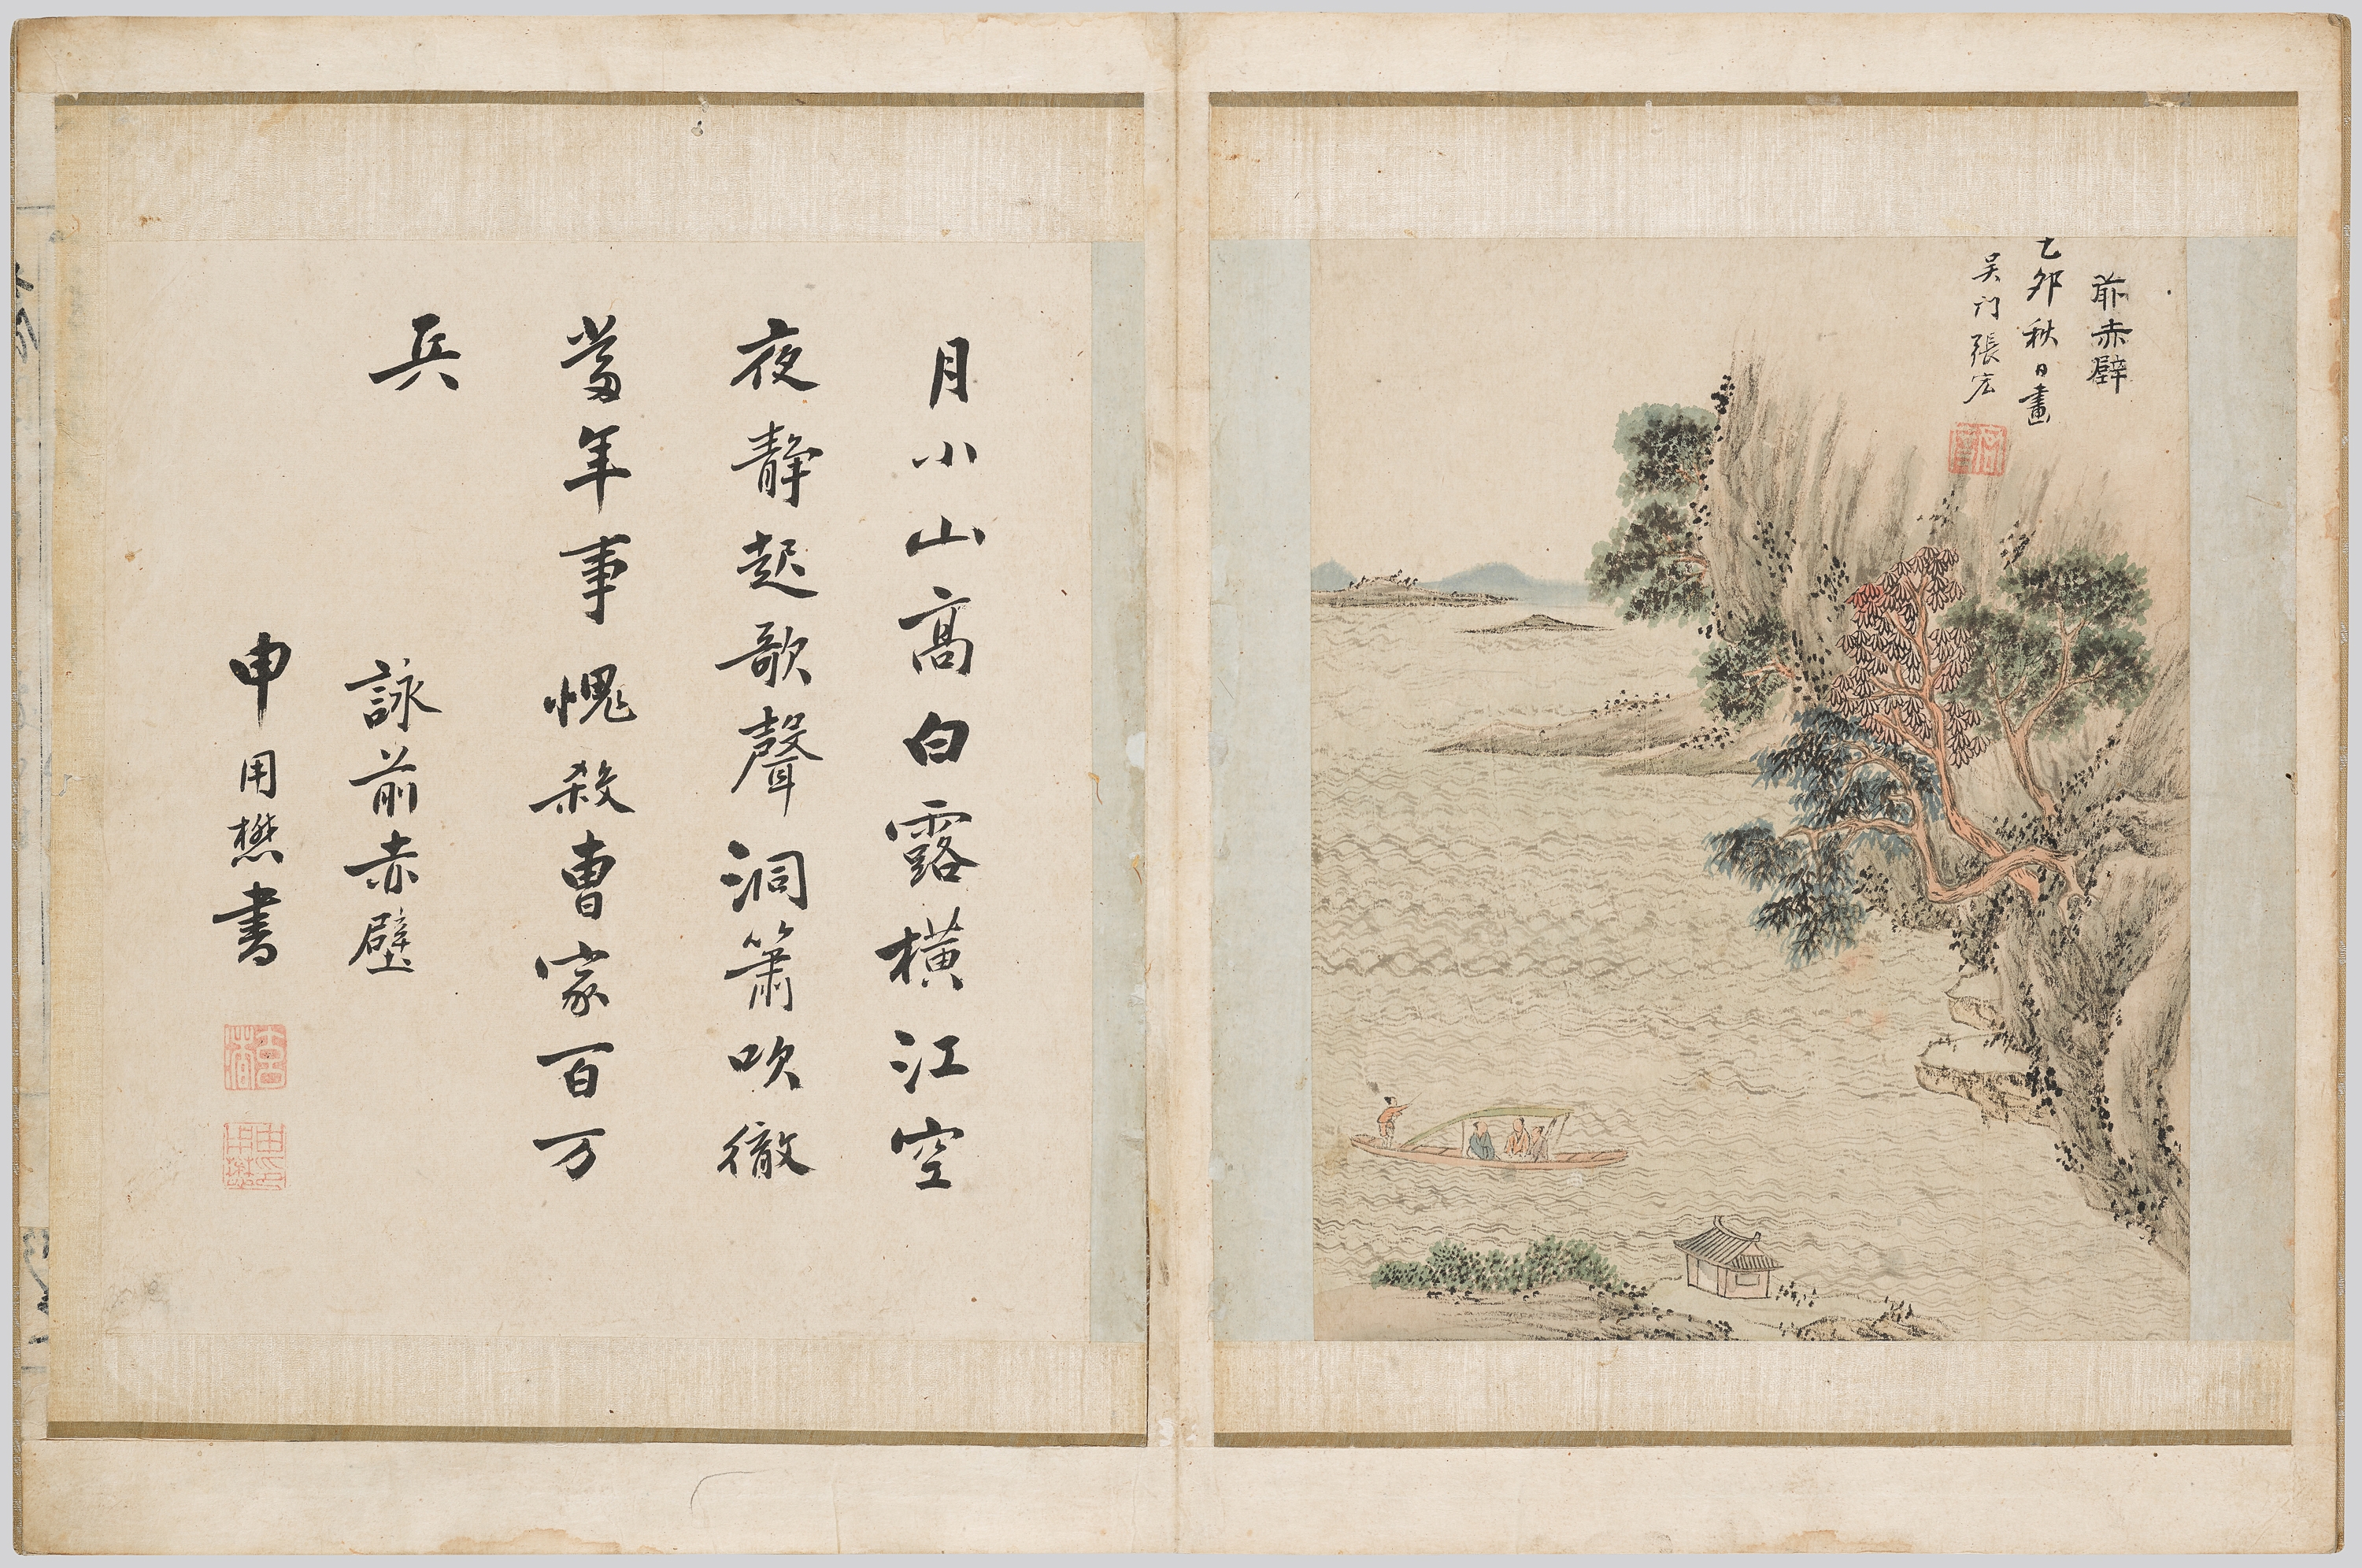 前赤壁
乙卯秋日畫
吴门張宏
月小山高白露橫江空
夜靜起歌聲洞簫吹徹
當年事愧殺曹家百万
兵
詠前赤壁
申用懋書